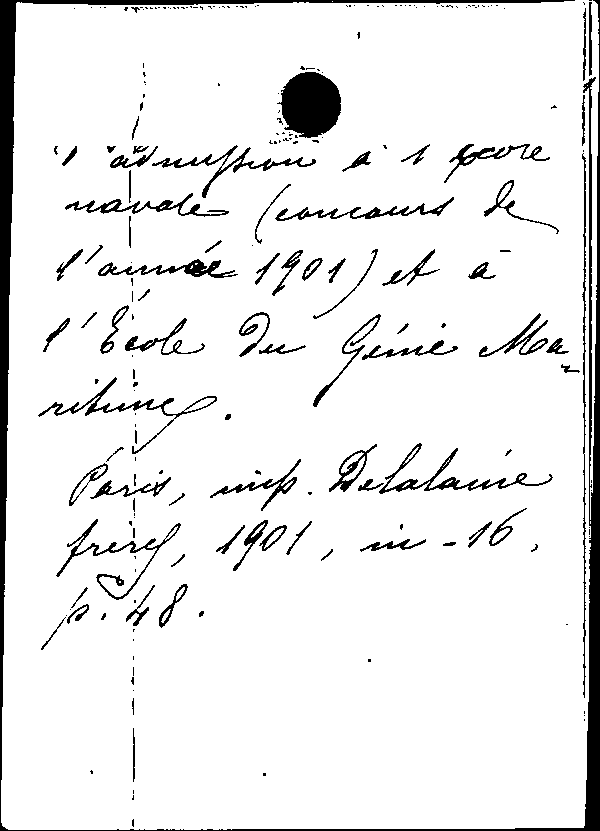 l'admission à l'Ecole
navale (concours de
l'année 1901) et à
l'École du Génie Ma-
ritime.
Paris, imp. Delalain
frères, 1901, in-16,
p. 48.